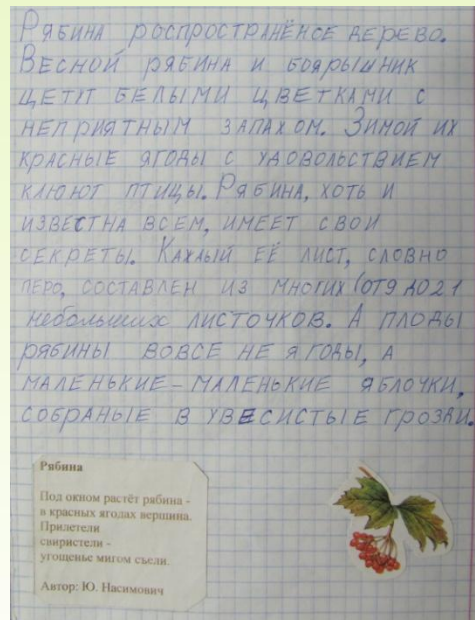 Рябина роспространёное дерево.
Весной рябина и боярышник
цетут белыми цветками с
неприятным запахом. Зимой их
красные ягоды с удовольствием
клюют птицы. Рябина, хоть и
известна всем, имеет свои
секреты. Каждый её лист, словно
перо, составлен из многих (от 9 до 21
небольших листочков. А плоды
рябины вовсе не ягоды, а
маленькие-маленькие яблочки,
собраные в увесистые грозди.
Рябина
Под окном растёт рябина -
в красных ягодах вершина.
Прилетели
свиристели -
угощенье мигом съели.
Автор: Ю. Насимович